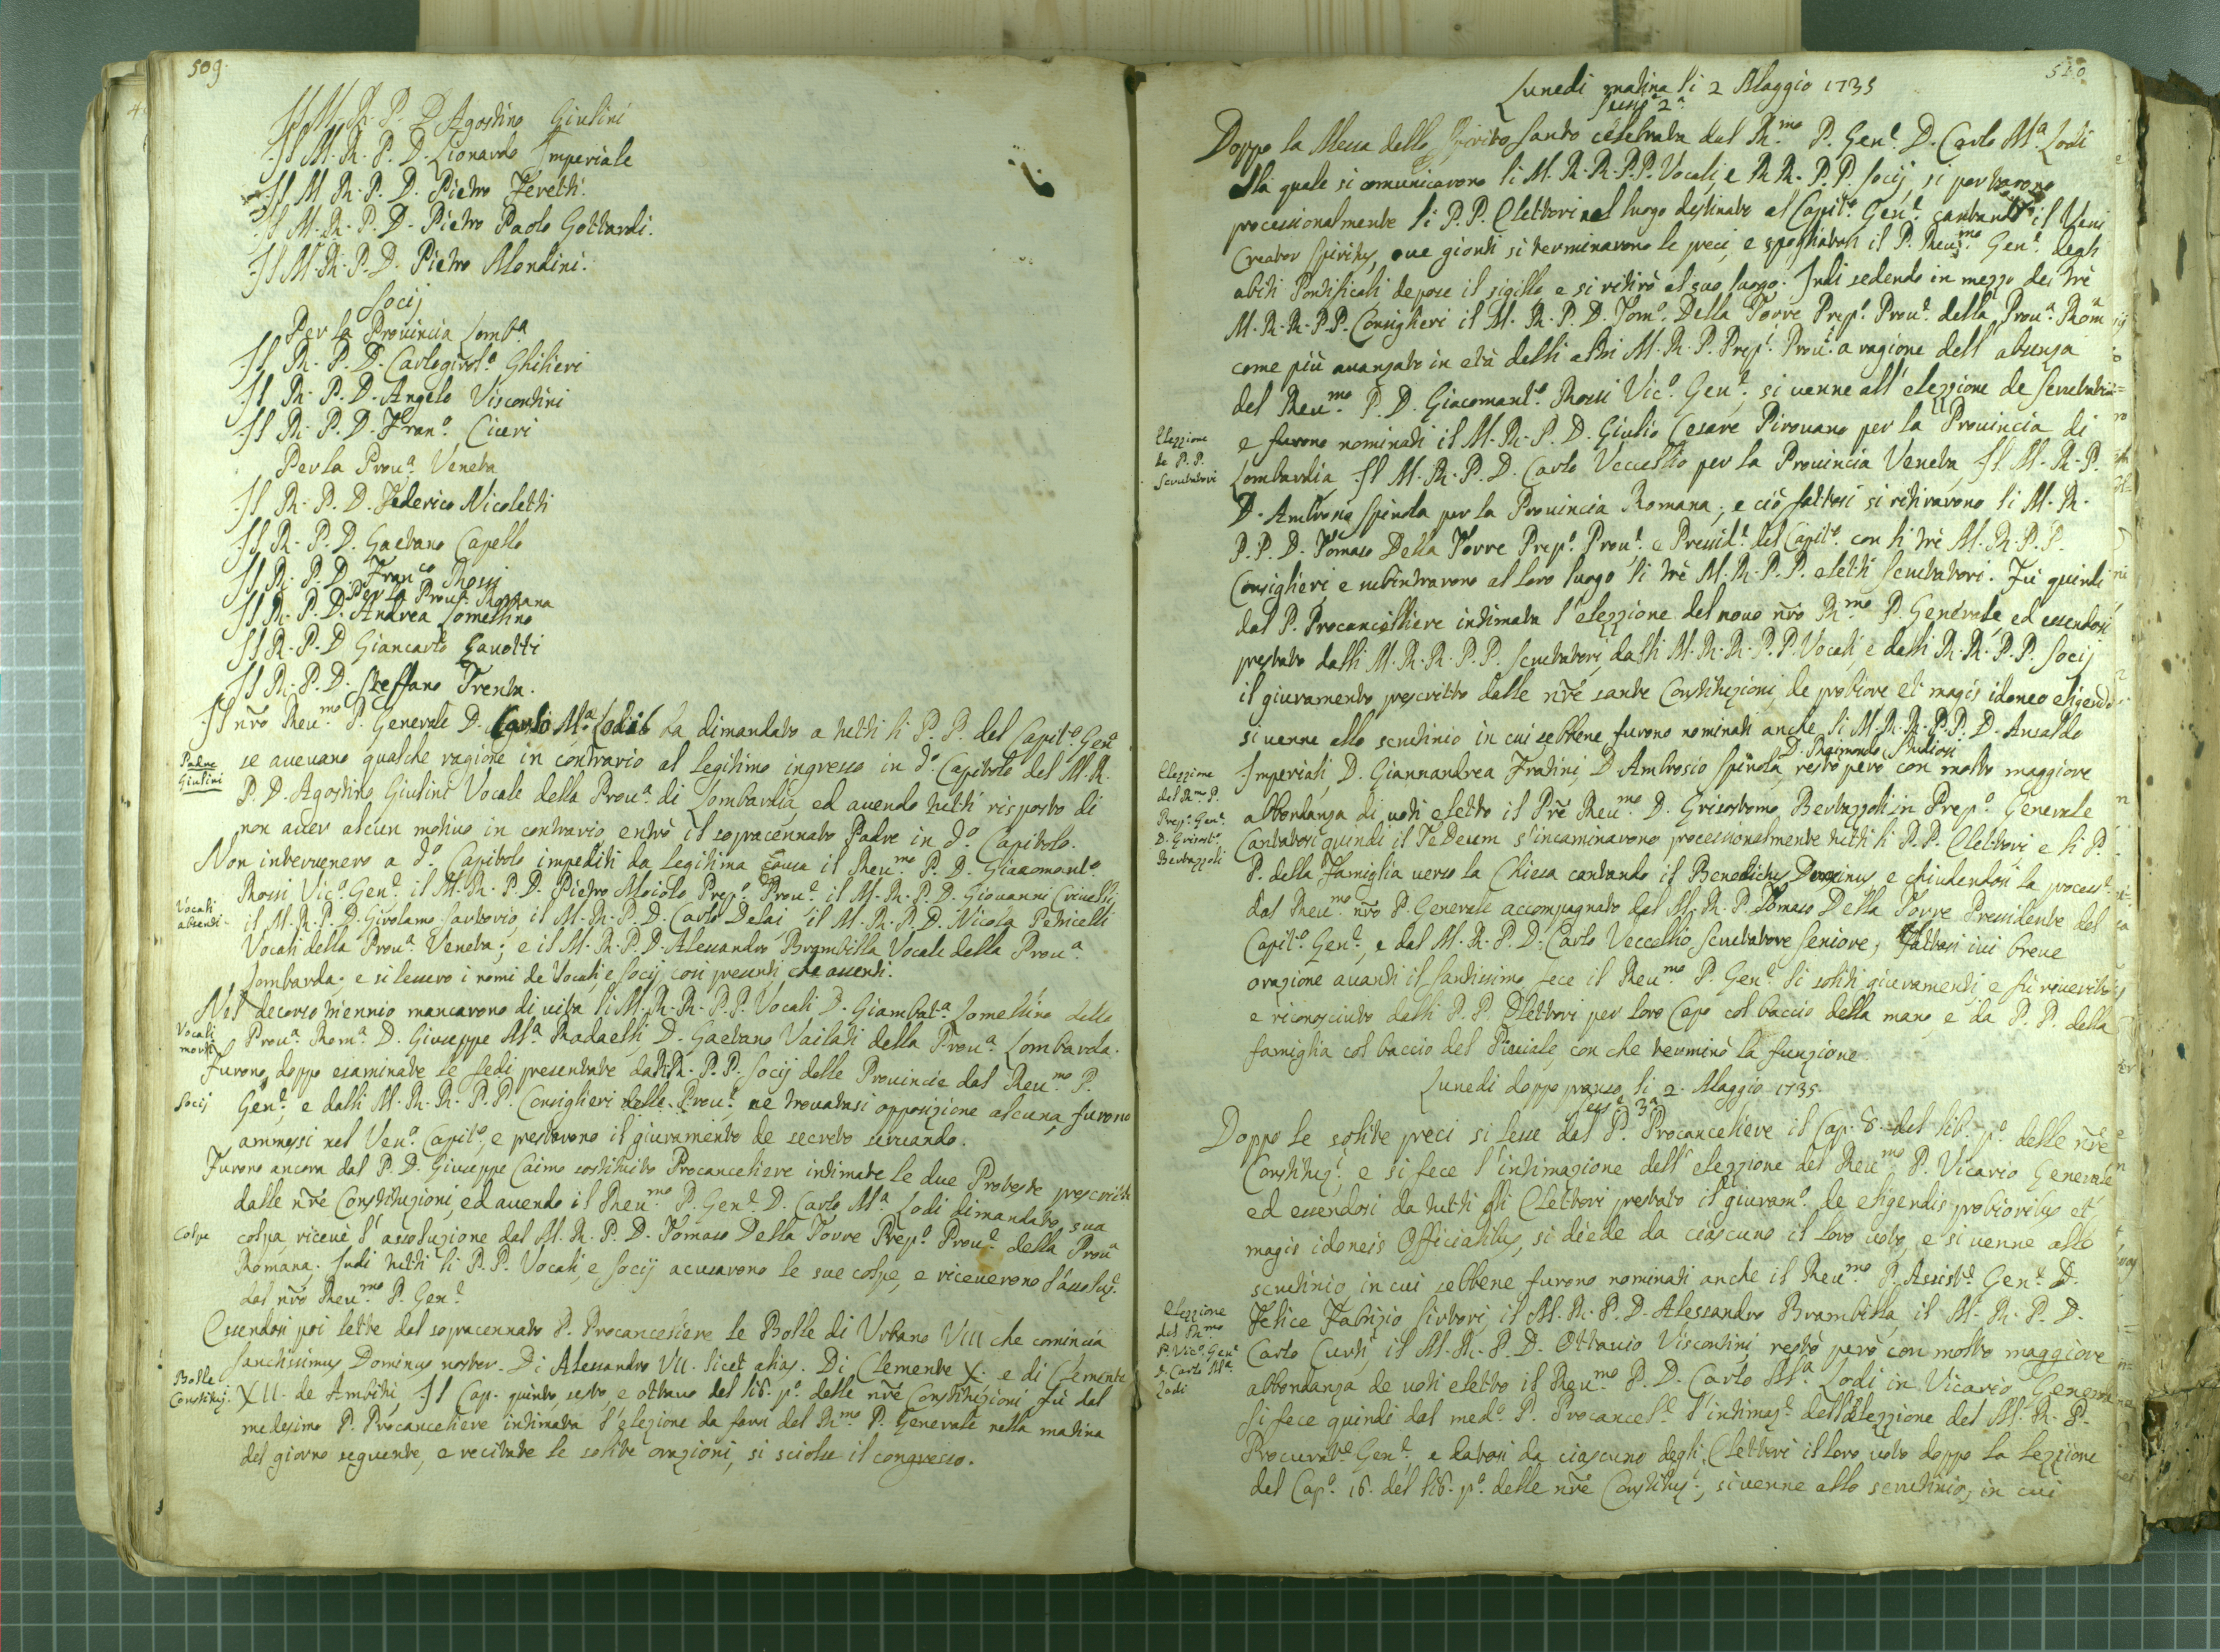 509.
Il M. R. P. D. Agostino Giulini
Il M. R. P. D. Lionardo Imperiale
Il M. R. P. D. Pietro Feretti.
Il M. R. P. D. Pietro Paolo Gottardi.
Il M. R. P. D. Pietro Mondini.
Socij
Per la Provincia Lomb.a
Il R. P. D. Carlogirol.o Ghilieri
Il R. P. D. Angelo Viscontini
Il R. P. D. Fran.o Ciceri
Per la Prov.a Veneta
Il R. P. D. Federico Nicoletti
Il R. P. D. Gaetano Capello
Il R. P. D. Fran.co Rossi
Per la Prov.a Romana
Il R. P. D. Andrea Lomellino
Il R. P. D. Giancarlo Gavotti
Il R. P. D. Steffano Trenta.
Il nr̃o Reu.mo P. Generale D. Carlo M.a Lodi ha dimandato a tutti li P. P. del Capit.o Gen.e
Padre
Giulini
se avevano qualche ragione in contrario al legitimo ingresso in d.o Capitolo del M. R.
P. D. Agostino Giulini Vocale della Prov.a di Lombardia, ed avendo tutti risposto di
non aver alcun motivo in contrario entrò il sopracennato Padre in d.o Capitolo.
Non intervenero a d.o Capitolo impediti da legitima causa il Reu.mo P. D. Giacomant.o
Rossi Vic.o Gen.e, il M. R. P. D. Pietro Moiolo Prep.o Prov.e il M. R. P. D. Giovanni Crivelli,
Vocali
absenti
il M. R. P. D. Girolamo Sartorio, il M. R. P. D. Carlo Delai il M. R. P. D. Nicola Petricelli
Vocali della Prov.a Veneta; e il M. R. P. D. Alessandro Brambilla Vocale della Prov.a
Lombarda; e si lessero i nomi de Vocali, e Socij con presenti che assenti.
Nel decorso triennio mancarono di vita li M. R. R. P. P. Vocali D. Giambat.a Lomellino della
Vocali
morti
Prov.a Rom.a D. Giuseppe M.a Radaelli D. Gaetano Vailati della Prov.a Lombarda.
Furono, doppo esaminate le fedi presentate da RR. P. P. Socij delle Provincie dal Reu.mo P.
Socij
Gen.e, e dalli M. R. R. P. P. Consiglieri delle Prov.e ne trovatasi opposizione alcuna, furono
ammessi nel Ven.o Capit.o, e prestarono il giuramento de secreto servando.
Furono ancora dal P. D. Giuseppe Caimo sostituito Procanceliere intimate le due Proteste prescritte
dalle nr̃e Constituzioni, ed avendo il Reu.mo P. Gen.e D. Carlo M.a Lodi dimandato sua
Colpe
colpa ricevè l'assoluzione dal M. R. P. D. Tomaso Della Torre Prep.o Prov.e della Prov.a
Romana. Indi tutti li P. P. Vocali, e Socij acusarono le sue colpe, e riceverono l'assoluz.e
dal nr̃o Reu.mo P. Gen.e
Essendosi poi lette dal sopracennato P. Procanceliere le Bolle di Urbano VIII che comincia
Sanctissimus Dominus noster. Di Alessandro VII. licet alias. Di Clemente X. e di Clemente
Bolle
Constituz.
XII. de Ambitu, Il Cap. quinto, sesto, e ottavo del lib. p.o delle nr̃e Constituzioni fù dal
medesimo P. Procanceliere intimata l'elezione da farsi del R.mo P. Generale nella matina
del giorno seguente, e recitate le solite orazioni, si sciolse il congresso.
510
Lunedi matina li 2 Maggio 1735
Sess.e 2.a
Doppo la Messa dello Spirito Santo celebrata dal R.mo P. Gen.e D. Carlo M.a Lodi
alla quale si comunicarono li M. R. R. P. P. Vocali, e R R. P. P. Socij, si portarono
processionalmente li P. P. Elettori nel luogo destinato al Capit.o Gen.e cantando il Veni
Creator Spiritus, ove gionti si terminarono le preci, e spogliatosi il P. Reu.mo Gen.e degli
abiti Pontificali depose il sigillo, e si ritirò al suo luogo. Indi sedendo in mezzo dei trè
M. R. R. P. P. Consiglieri il M. R. P. D. Tom.o Della Torre Prep.o Prov.e della Prov.a Rom.a
come più avanzato in età delli altri M. R. P. Prep.i Prov.i a ragione dell'absenza
del Reu.mo P. D. Giacomant.o Rossi Vic.o Gen.e, si venne all'elezzione de Scrutatori
Elezzione
de P. P.
Scrutatori
e furono nominati il M. R. P. D. Giulio Cesare Pirovano per la Provincia di
Lombardia Il M. R. P. D. Carlo Veccellio per la Provincia Veneta Il M. R. P.
D. Ambrosio Spinola per la Provincia Romana; e ciò fattosi si ritirarono li M. R.
P. P. D. Tomaso Della Torre Prep.o Prov.e e Presid.e del Capit.o con li trè M. R. P. P.
Consiglieri, e subintrarono al loro luogo li trè M. R. P. P. eletti Scrutatori. Fù quindi
dal P. Procancelliere intimata l'elezzione del novo nr̃o R.mo P. Generale, ed essendosi
prestato dalli M. R. R. P. P. Scrutatori, dalli M. R. R. P. P. Vocali, e dalli R. R. P. P. Socij
il giuramento prescritto dalle nr̃e sante Constituzioni, de probiore et magis idoneo eligendo
si venne allo scrutinio in cui sebbene furono nominati anche li M. R. R. P. P. D. Ansaldo
D. Raimondo Studiosi
Elezzione
del R.mo P.
Prep.o Gen.e
D. Grisost.o
Bertazzoli
Imperiali, D. Giannandrea Fratini, D. Ambrosio Spinola, restò però con molto maggiore
abbondanza di voti eletto il Pr̃e Reu.mo D. Grisostomo Bertazzoli in Prep.o Generale
Cantatosi quindi il Te Deum s'incaminarono processionalmente tutti li P. P. Elettori e li P.
P. della Famiglia verso la Chiesa cantando il Benedictus Dominus e chiudendosi la process.e
dal Reu.mo nr̃o P. Generale accompagnato dal M. R. P. Tomaso Della Torre Presidente del
Capit.o Gen.e, e dal M. R. P. D. Carlo Veccellio Scrutatore Seniore; Fattasi ivi breve
orazione avanti il Santissimo fece il Reu.mo P. Gen.e li soliti giuramenti, e fù reverito
e riconosciuto dalli P. P. Elettori per loro Capo col baccio della mano e da P. P. della
famiglia col baccio del Piviale, con che terminò la funzione
Lunedi doppo pranso li 2. Maggio 1735.
Sess.e 3.a
Doppo le solite preci si lesse dal P. Procanceliere il Cap. 8. del lib. p.o delle nr̃e
Constituz.i, e si fece l'intimazione dell'elezzione del Reu.mo P. Vicario Generale
ed essendosi da tutti gli Elettori prestato il giuram.o de eligendis probioribus et
magis idoneis Officialibus, si diede da ciascuno il loro voto, e si venne allo
scrutinio, in cui sebbene furono nominati anche il Reu.mo P. Assist.e Gen.e D.
Elezzione
del R.mo
P. Vic.o Gen.e
D. Carlo M.a
Lodi
Felice Fabrizio Sirtori, il M. R. P. D. Alessandro Brambilla, il M. R. P. D.
Carlo Curti, il M. R. P. D. Ottavio Viscontini, restò però con molto maggiore
abbondanza de voti eletto il Reu.mo P. D. Carlo M.a Lodi in Vicario Generale
Si fece quindi dal med.o P. Procancel.e l'intimaz.e dell'elezzione del M. R. P.
Procurat.e Gen.e e datosi da ciascuno degli Elettori il loro voto doppo la lezzione
del Cap.o 16. del lib. p.o delle nr̃e Constituz.i, si venne allo scrutinio, in cui